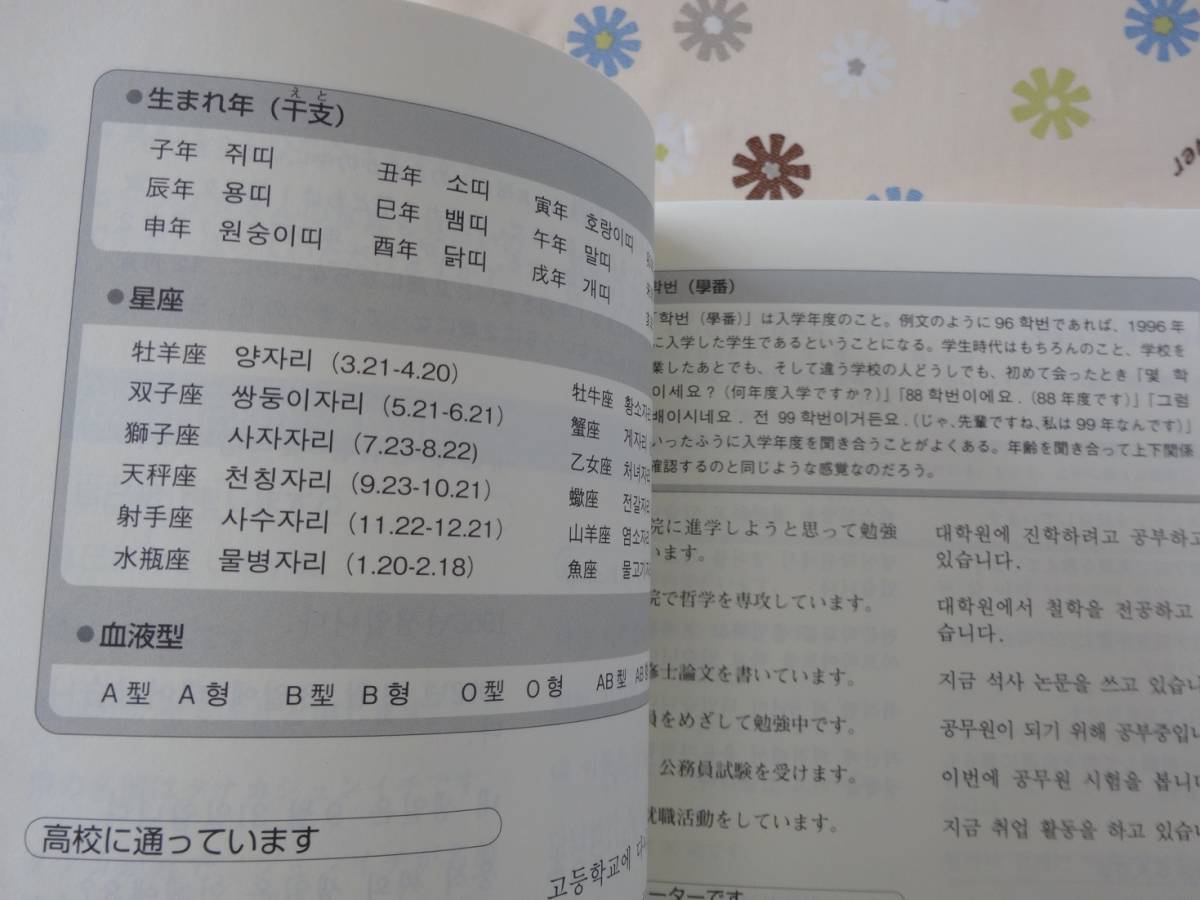 ●生まれ年（干支）
えと
子年 쥐띠 丑年 소띠 寅年 호랑이띠
辰年 용띠 巳年 뱀띠 午年 말띠
申年 원숭이띠 酉年 닭띠 戌年 개띠
●星座
牡羊座 양자리 (3.21-4.20) 牡牛座 황소자리
双子座 쌍둥이자리 (5.21-6.21) 蟹座 게자리
獅子座 사자자리 (7.23-8.22) 乙女座 처녀자리
天秤座 천칭자리 (9.23-10.21) 蠍座 전갈자리
射手座 사수자리 (11.22-12.21) 山羊座 염소자리
水瓶座 물병자리 (1.20-2.18) 魚座 물고기자
●血液型
A型 A형 B型 B형 O型 O형 AB型 AB형
高校に通っています
고등학교에 다
학번（學番）
「학번（學番）」は入学年度のこと。例文のように96학번であれば、1996年
に入学した学生であるということになる。学生時代はもちろんのこと、学校を
業したあとでも、そして違う学校の人どうしでも、初めて会ったとき「몇 학
이세요？(何年度入学ですか？)」「88학번이에요．(88年度です)」「그럼
배이시네요．전 99학번이거든요．(じゃ、先輩ですね、私は99年なんです)」
いったふうに入学年度を聞き合うことがよくある。年齢を聞き合って上下関係
確認するのと同じような感覚なのだろう。
院に進学しようと思って勉強
います。
대학원에 진학하려고 공부하고
있습니다.
院で哲学を専攻しています。
대학원에서 철학을 전공하고
습니다.
修士論文を書いています。
지금 석사 논문을 쓰고 있습니
員をめざして勉強中です。
공무원이 되기 위해 공부중입니
公務員試験を受けます。
이번에 공무원 시험을 봅니다
就職活動をしています。
지금 취업 활동을 하고 있습니
ーターです